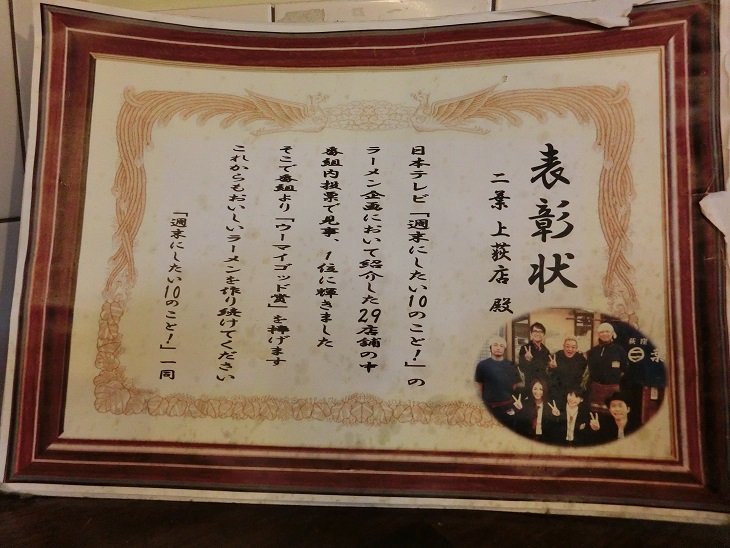 表彰状
二葉 上荻店 殿
日本テレビ「週末にしたい10のこと！」の
ラーメン企画において紹介した29店舗の中
番組内投票で見事、1位に輝きました
そこで番組より「ウーマイゴッド賞」を捧げます
これからもおいしいラーメンを作り続けてください
「週末にしたい10のこと！」一同
荻窪
二葉